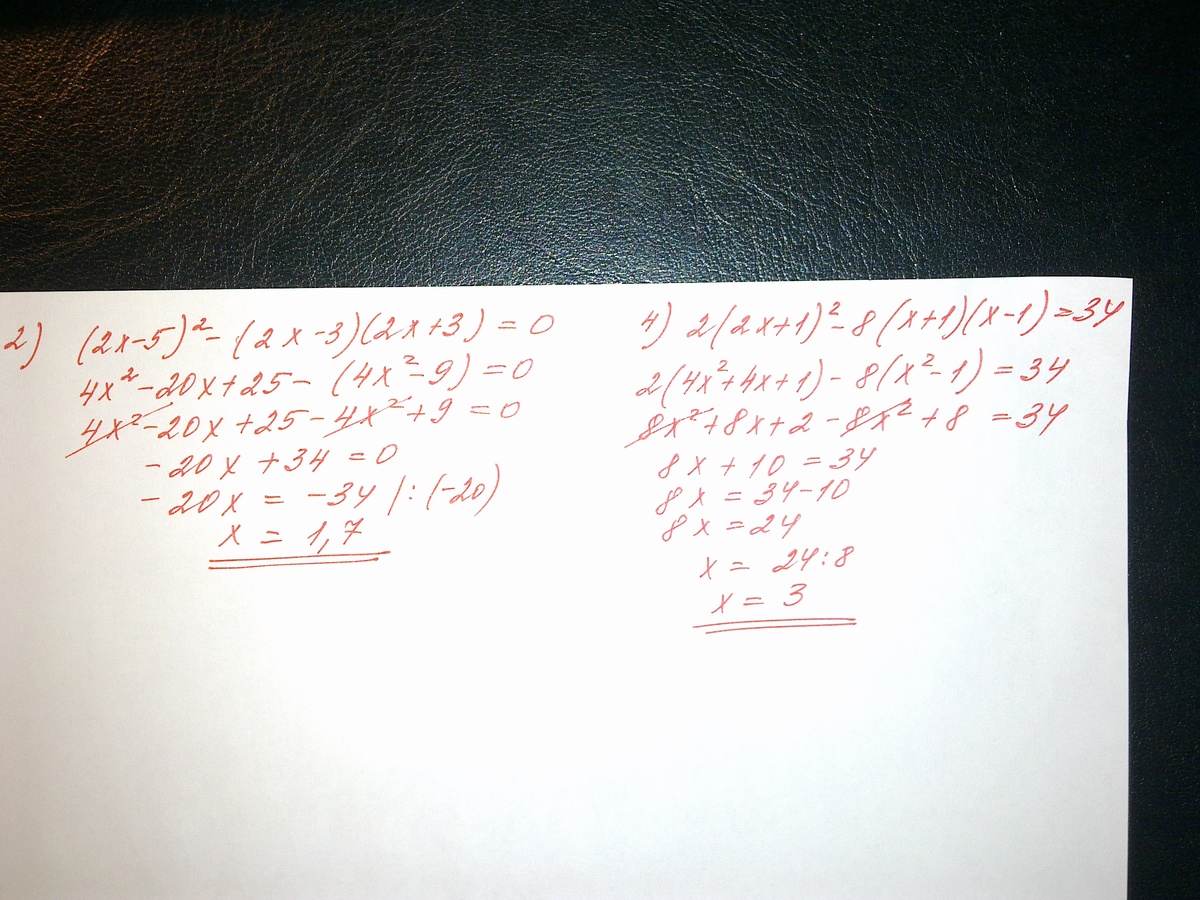 2) (2x-5)² - (2x-3)(2x+3) = 0
4x² - 20x + 25 - (4x² - 9) = 0
4x² - 20x + 25 - 4x² + 9 = 0
- 20x + 34 = 0
- 20x = -34 /: (-20)
x = 1,7
4) 2(2x+1)² - 8(x+1)(x-1) = 34
2(4x² + 4x + 1) - 8(x² - 1) = 34
8x² + 8x + 2 - 8x² + 8 = 34
8x + 10 = 34
8x = 34-10
8x = 24
x = 24:8
x = 3